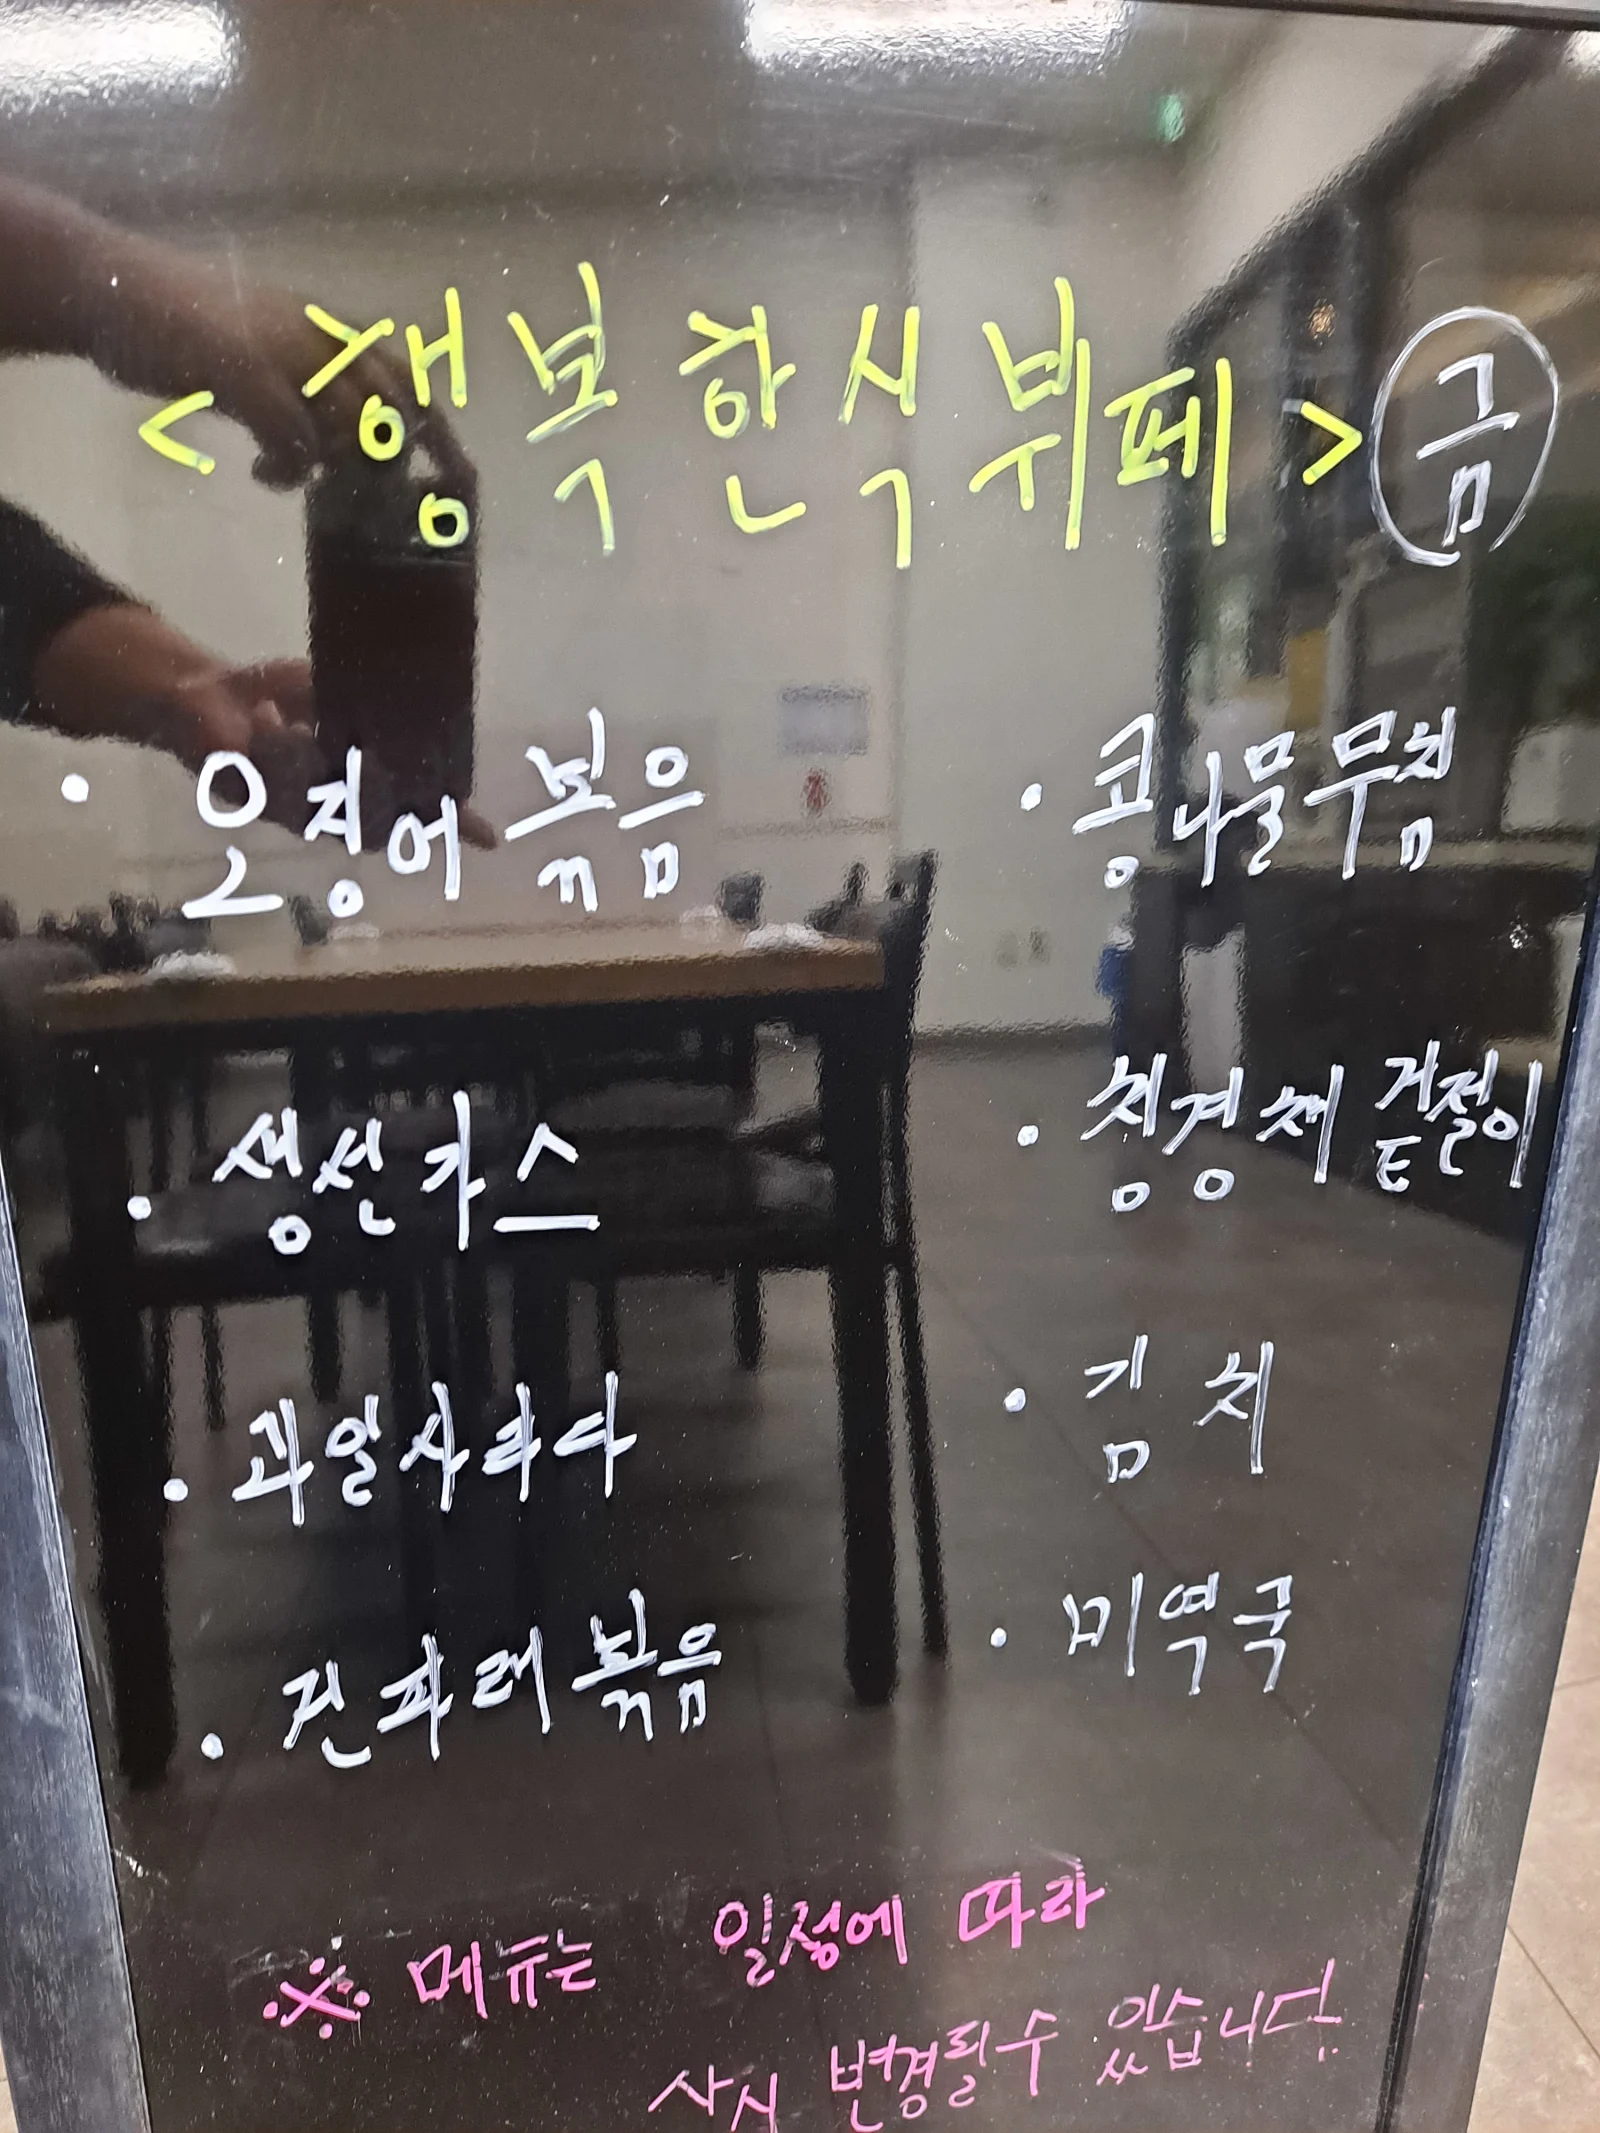 <행복한식뷔페> 금
· 오징어 볶음
· 생선가스
· 과일사라다
· 건파래 볶음
· 콩나물무침
· 청경채 겉절이
· 김치
· 미역국
※ 메뉴는 일정에 따라
사시 변경될수 있습니다.